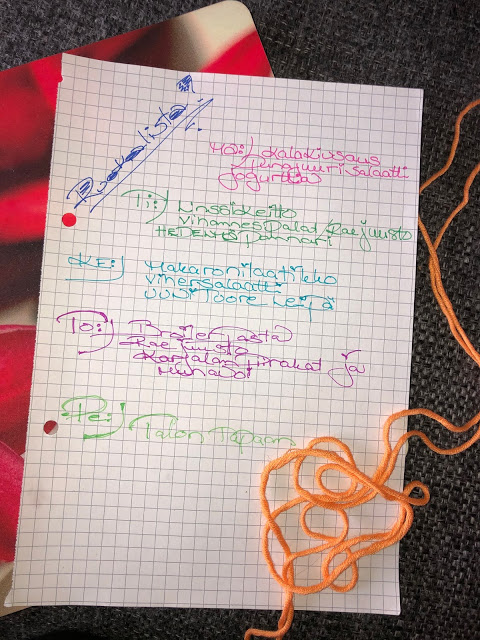 Ruokalista
Ma:) Kalakiusaus
Punajuurisalaatti
Jogurttia
Ti:) Linssikeitto
Vihannes Palat/Raejuusto
HEDELMÄ Pannari
KE:) Makaronilaatikko
Vihersalaatti
UUNITUORE Leipä
To:) Broileripasta
Raejuusto
Karjalan Piirakat ja
Munavoi
Pe:) Talon Tapaan